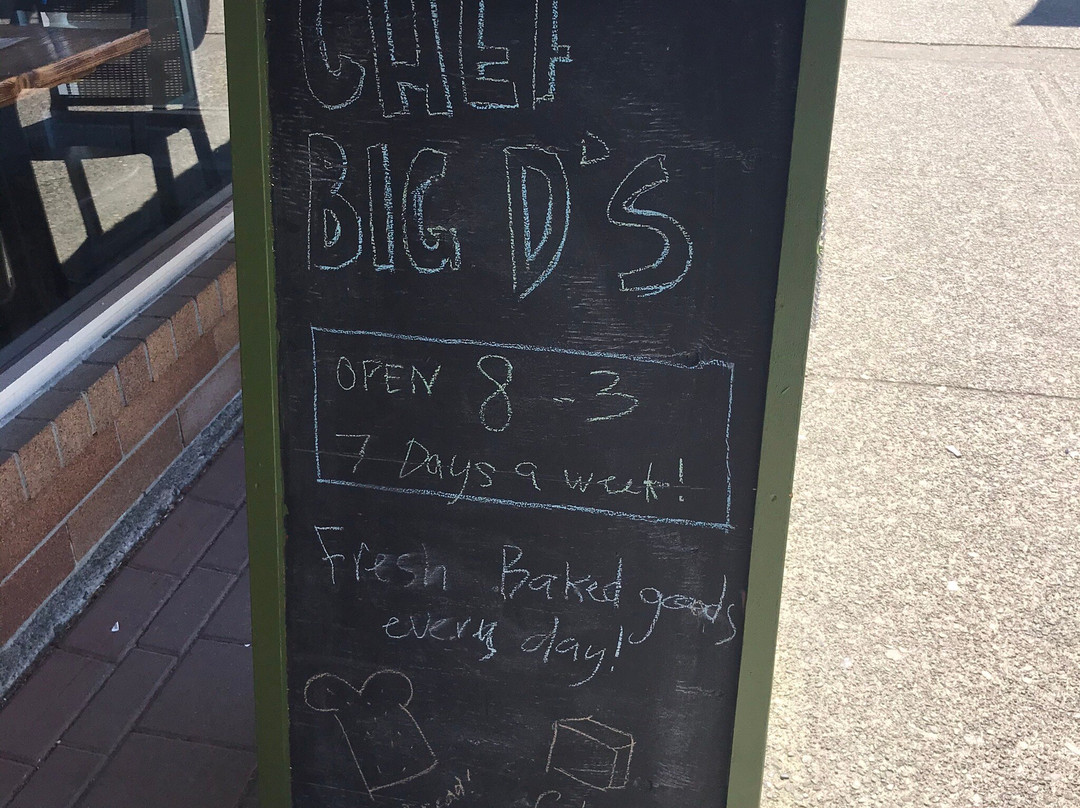 CHEF
BIG D'S
OPEN 8 - 3
7 Days a week!
Fresh Baked goods
every day!